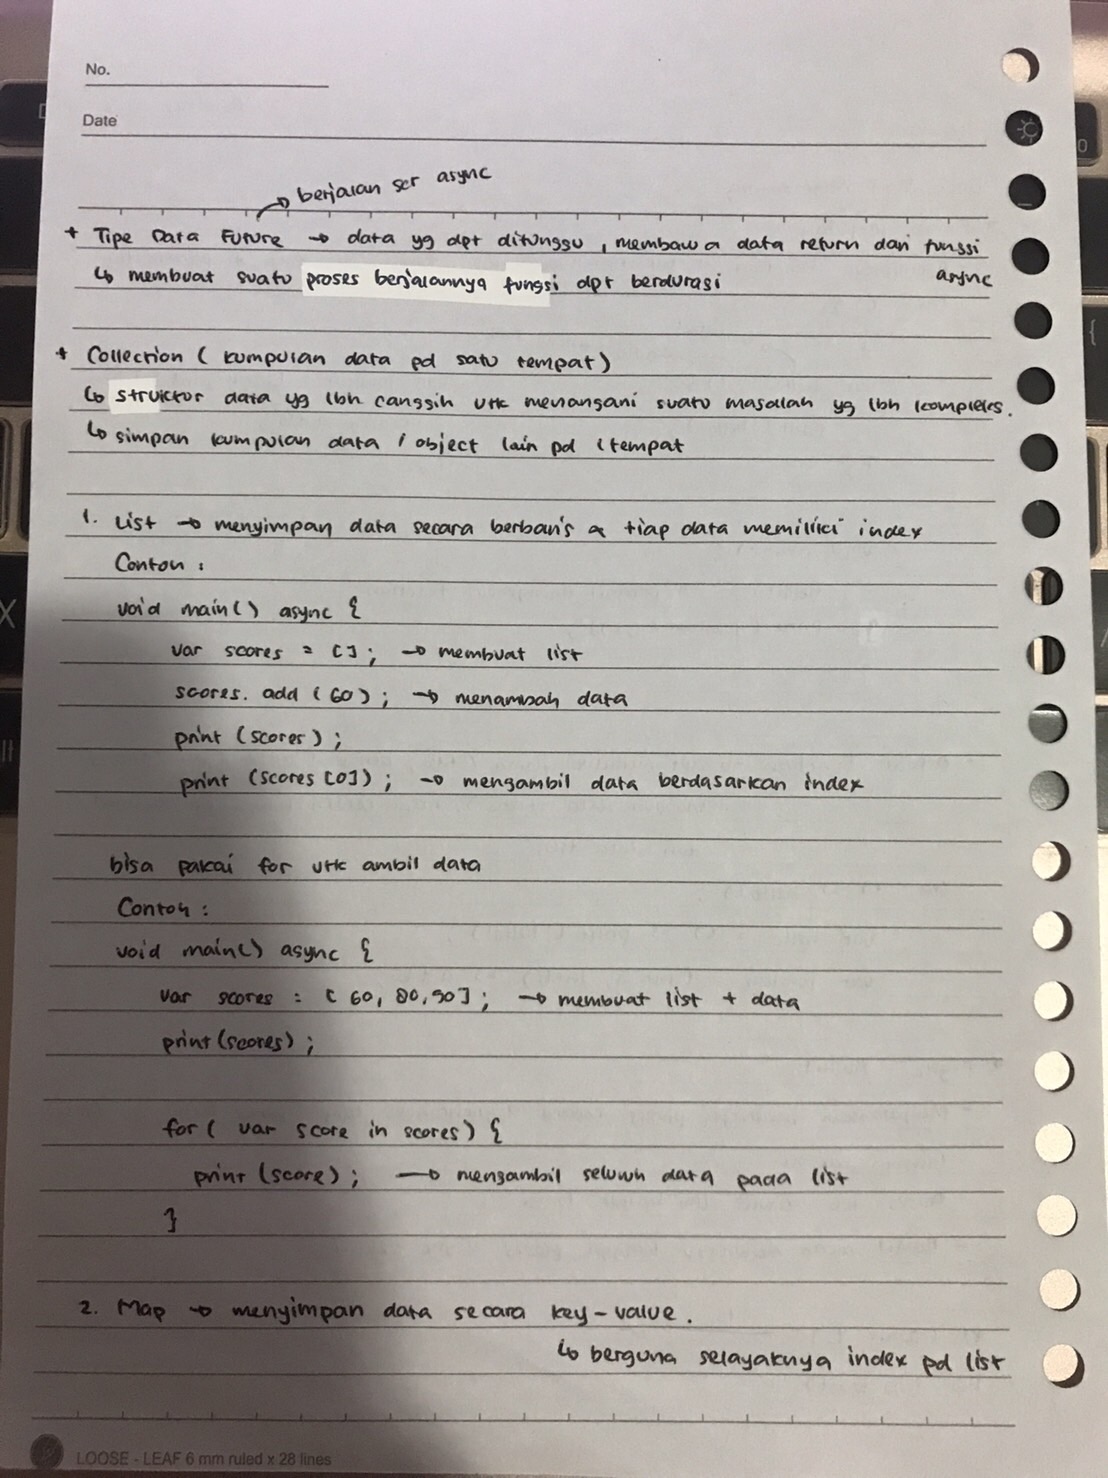 No.
Date
berjalan scr async
* Tipe Data Future → data yg dpt ditunggu, membawa data return dari fungsi
async
↳ membuat suatu proses berjalannya fungsi dpt berdurasi
* Collection ( kumpulan data pd satu tempat )
↳ struktur data yg lbh canggih utk menangani suatu masalah yg lbh kompleks.
↳ simpan kumpulan data / object lain pd 1 tempat
1. List → menyimpan data secara berbaris & tiap data memiliki index
Contoh :
void main() async {
var scores = []; → membuat list
scores. add (60); → menambah data
print (scores);
print (scores [0]); → mengambil data berdasarkan index
bisa pakai for utk ambil data
Contoh :
void main() async {
var scores = [ 60, 80, 90]; → membuat list + data
print (scores);
for ( var score in scores) {
print (score); → mengambil seluruh data pada list
}
2. Map → menyimpan data secara key-value.
↳ berguna selayaknya index pd list
LOOSE - LEAF 6 mm ruled x 28 lines